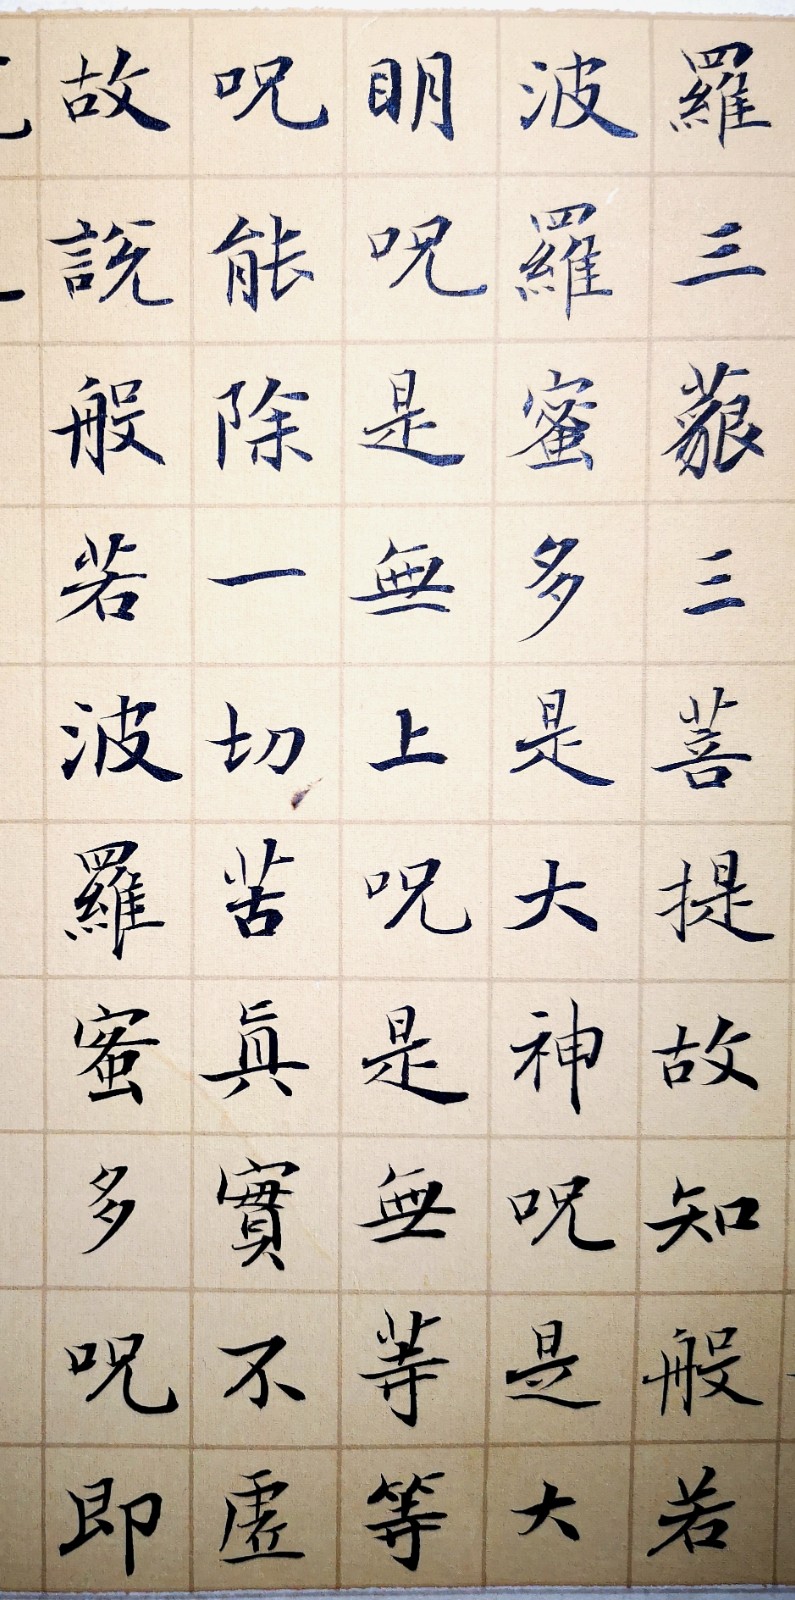 羅三藐三菩提故知般若
波羅蜜多是大神呪是大
明呪是無上呪是無等等
呪能除一切苦真實不虛
故說般若波羅蜜多呪即